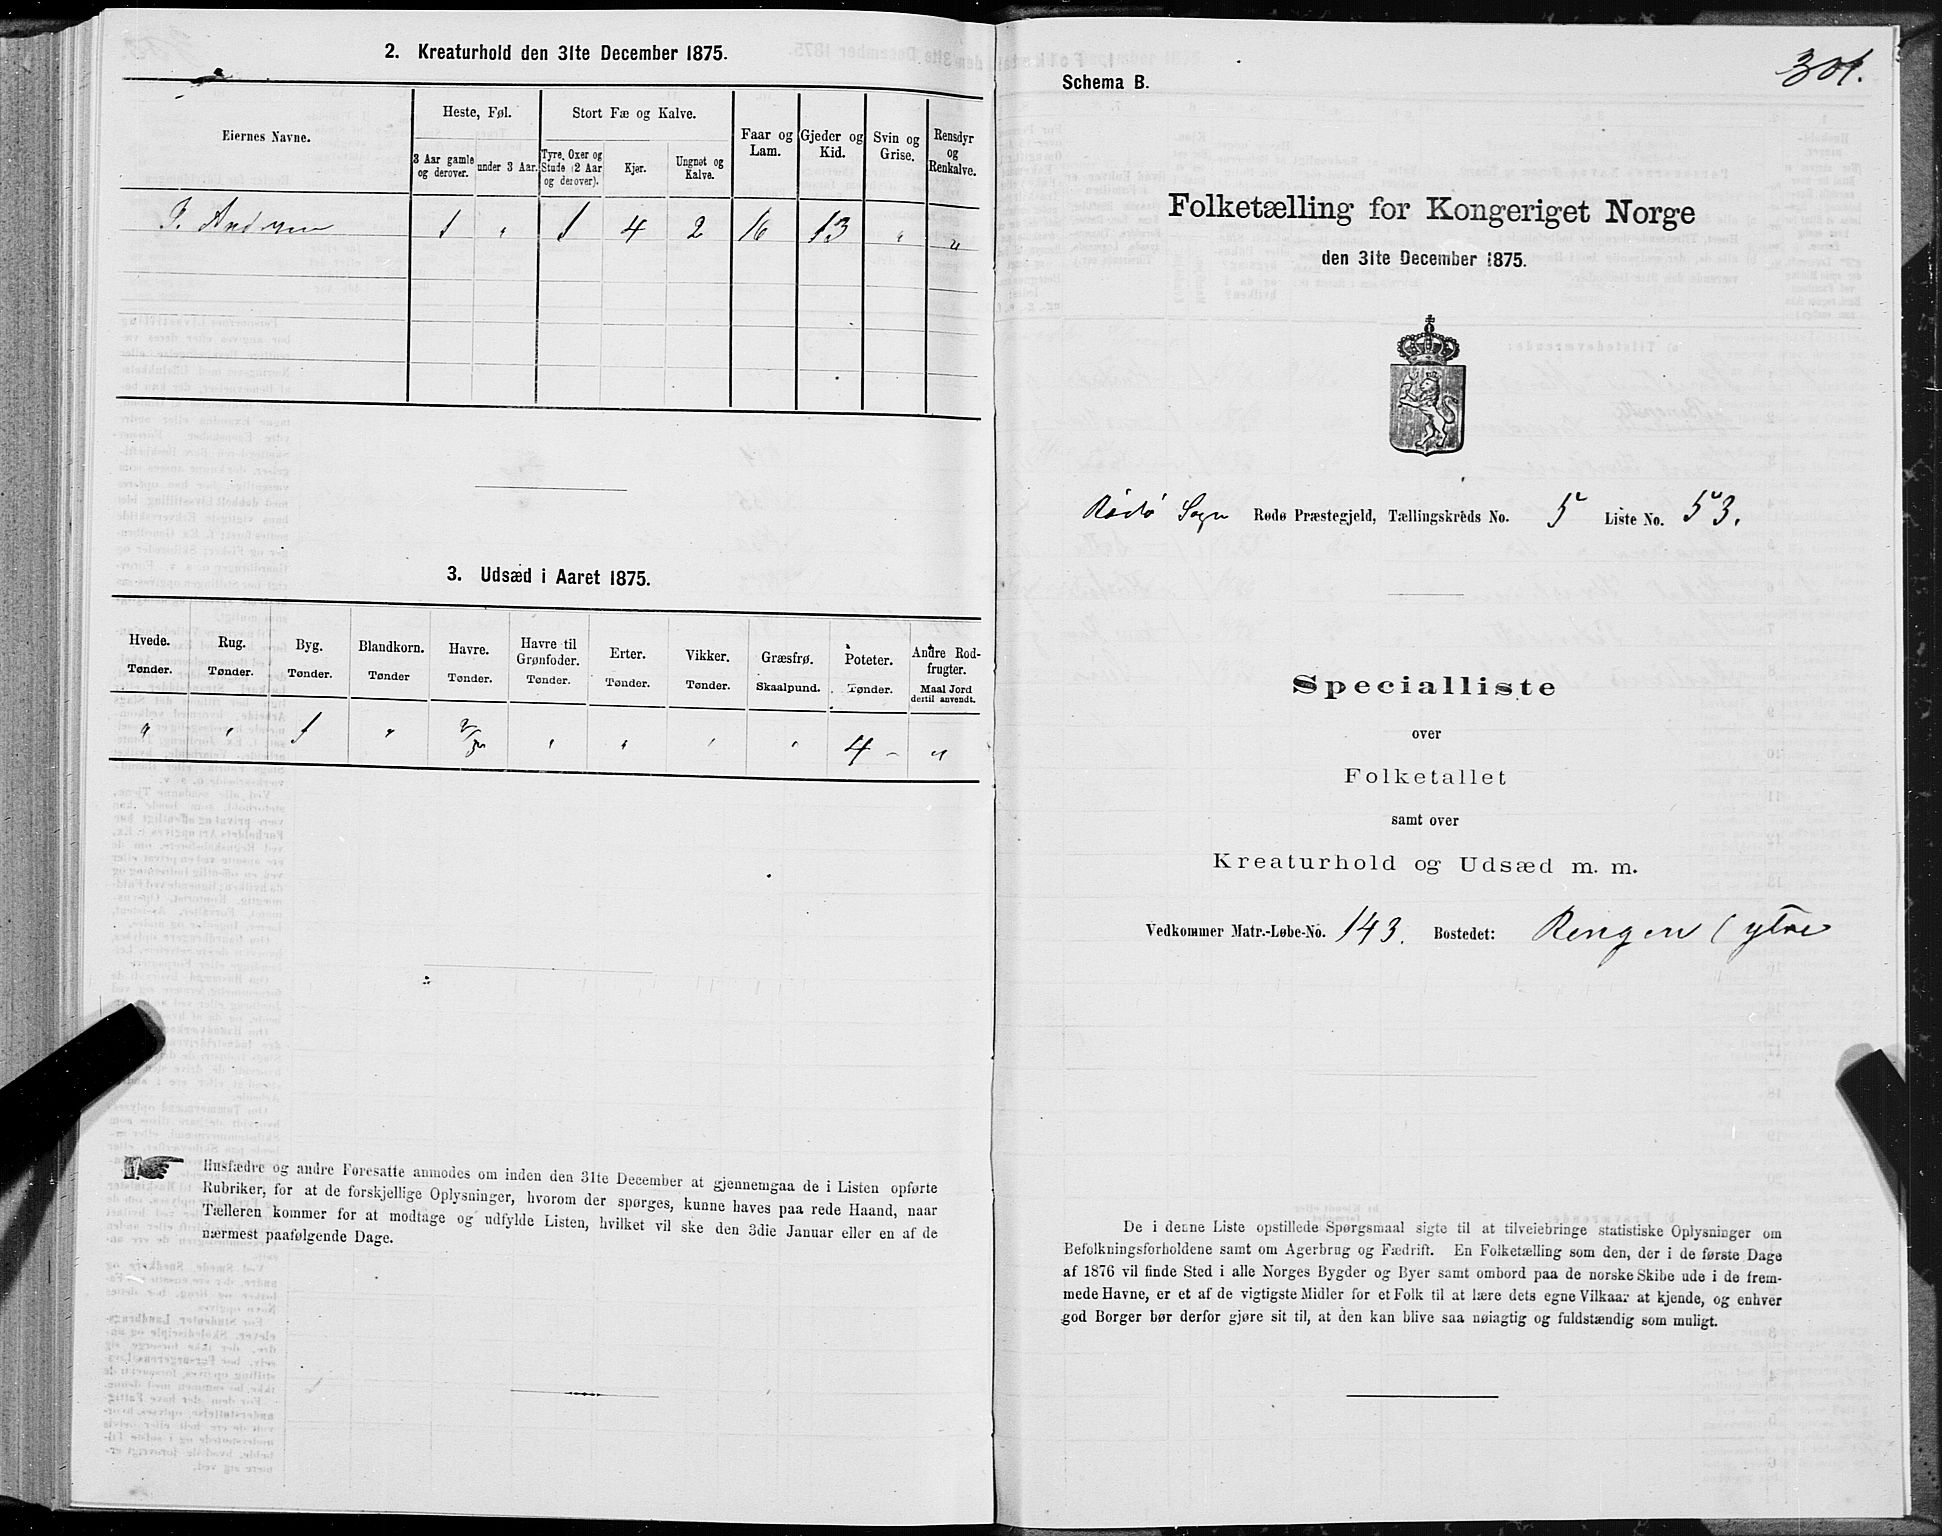 2. Kreaturhold den 31te December 1875.
Eiernes Navne.
Heste, Føl.
Stort Fæ og Kalve.
Faar og Lam.
Gjeder og Kid.
Svin og Grise.
Rensdyr og Renkalve.
3 Aar gamle og derover.
under 3 Aar.
Tyre, Oxer og Stude (2 Aar og derover).
Kjør.
Ungnøt og Kalve.
1 " 1 4 2 16 13 " "
3. Udsæd i Aaret 1875.
Hvede. Rug. Byg. Blandkorn. Havre. Havre til Grønfoder. Erter. Vikker. Græsfrø. Poteter. Andre Rodfrugter.
Tønder. Tønder. Tønder. Tønder Tønder. Tønder. Tønder. Tønder. Skaalpund. Tønder. Maal Jord dertil anvendt.
" " 1 " " " " " 4 – "
Husfædre og andre Foresatte anmodes om inden den 31te December at gjennemgaa de i Listen opførte
Rubriker, for at de forskjellige Oplysninger, hvorom der spørges, kunne haves paa rede Haand, naar
Tælleren kommer for at modtage og udfylde Listen, hvilket vil ske den 3die Januar eller en af de
nærmest paafølgende Dage.
301.
Schema B.
Folketælling for Kongeriget Norge
den 31te December 1875.
Rødø Sogn Rødø Præstegjeld, Tællingskreds No. 5 Liste No. 53.
Specialliste
over
Folketallet
samt over
Kreaturhold og Udsæd m. m.
Vedkommer Matr.-Løbe-No. 143. Bostedet: Rengen (ytre
De i denne Liste opstillede Spørgsmaal sigte til at tilveiebringe statistiske Oplysninger om
Befolkningsforholdene samt om Agerbrug og Fædrift. En Folketælling som den, der i de første Dage
af 1876 vil finde Sted i alle Norges Bygder og Byer samt ombord paa de norske Skibe ude i de frem-
mede Havne, er et af de vigtigste Midler for et Folk til at lære dets egne Vilkaar at kjende, og enhver
god Borger bør derfor gjøre sit til, at den kan blive saa nøiagtig og fuldstændig som muligt.